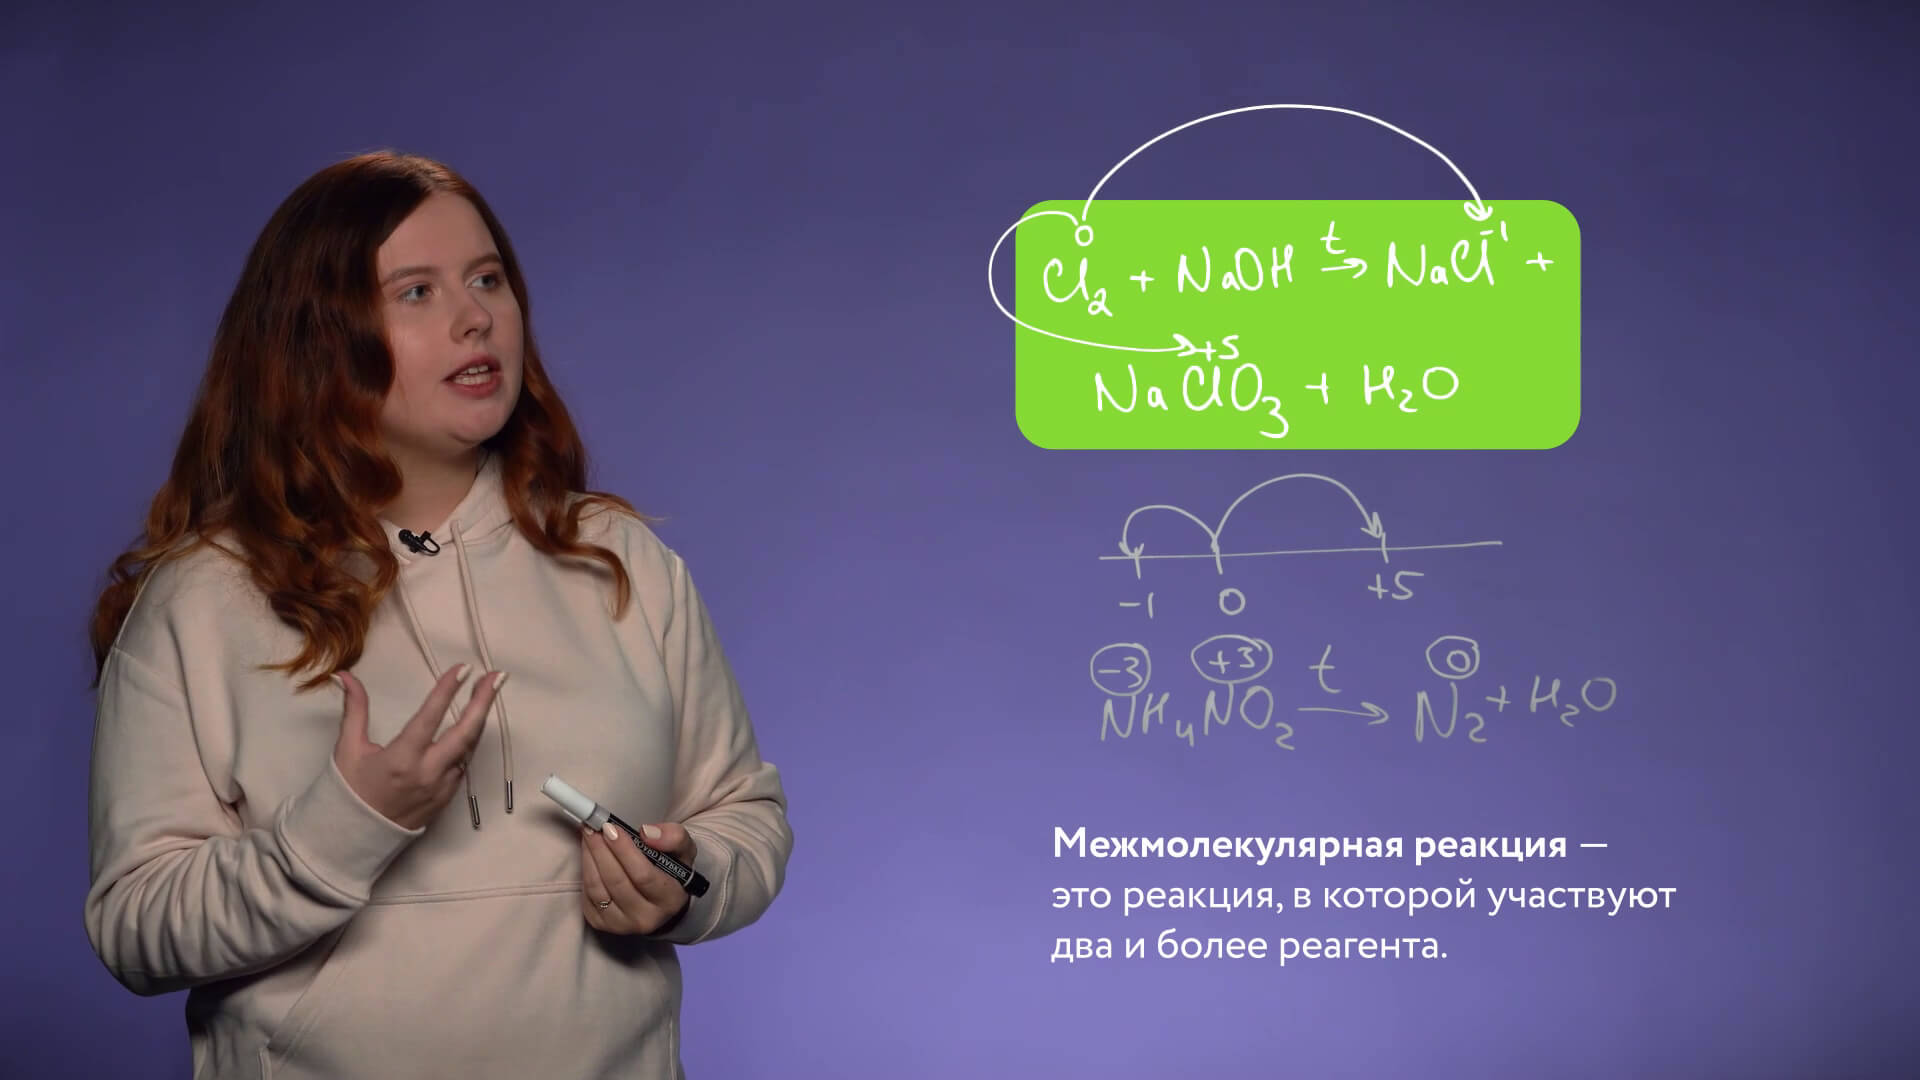 0
Cl2 + NaOH t→ NaCl-1 +
+5
NaClO3 + H2O
-1 0 +5
-3 +3 t 0
NH4NO2 → N2 + H2O
Межмолекулярная реакция —
это реакция, в которой участвуют
два и более реагента.